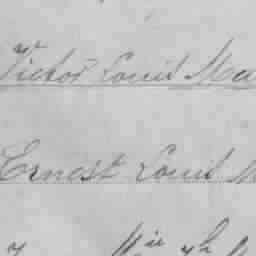 Victor Louis Ma
Ernest Louis M